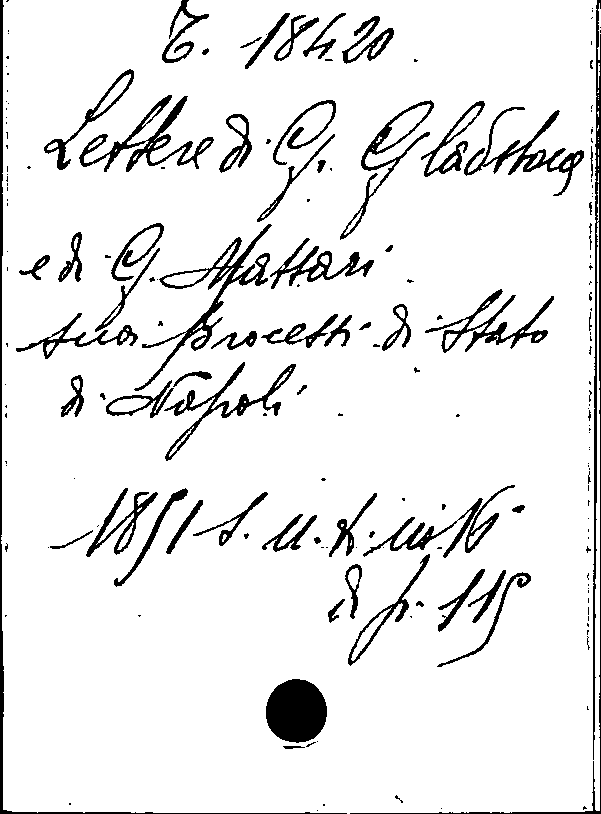 T. 18420
Lettere di G. Gladstone
e di G. Massari
sui processi di Stato
di Napoli
1851 s. u. t. in 16°
di p. 115